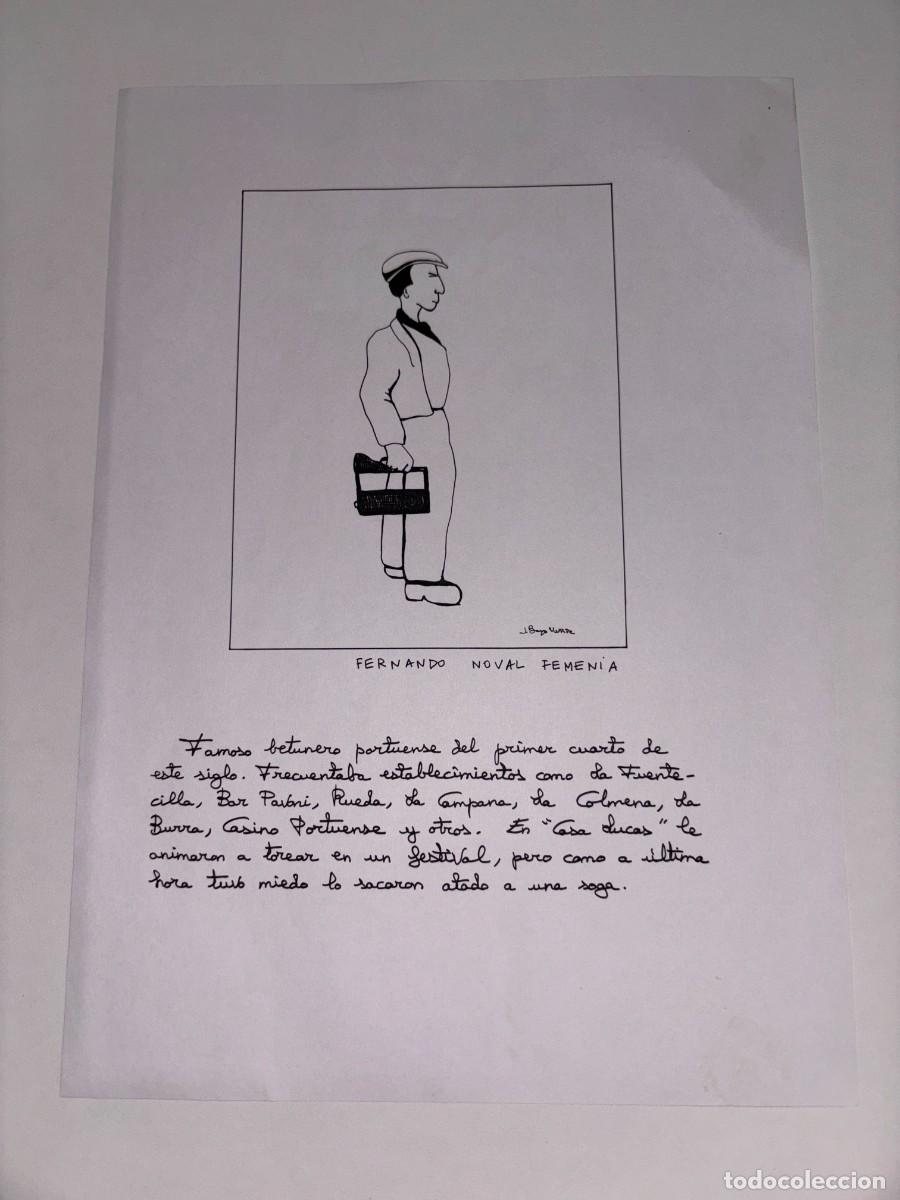 FERNANDO NOVAL FEMENIA
Famoso betunero portuense del primer cuarto de
este siglo. Frecuentaba establecimientos como La Fuente-
cilla, Bar Pavoni, Rueda, La Campana, La Colmena, La
Burra, Casino Portuense y otros. En "Casa Lucas" le
animaron a torear en un festival, pero como a última
hora tuvo miedo lo sacaron atado a una soga.
todocoleccion